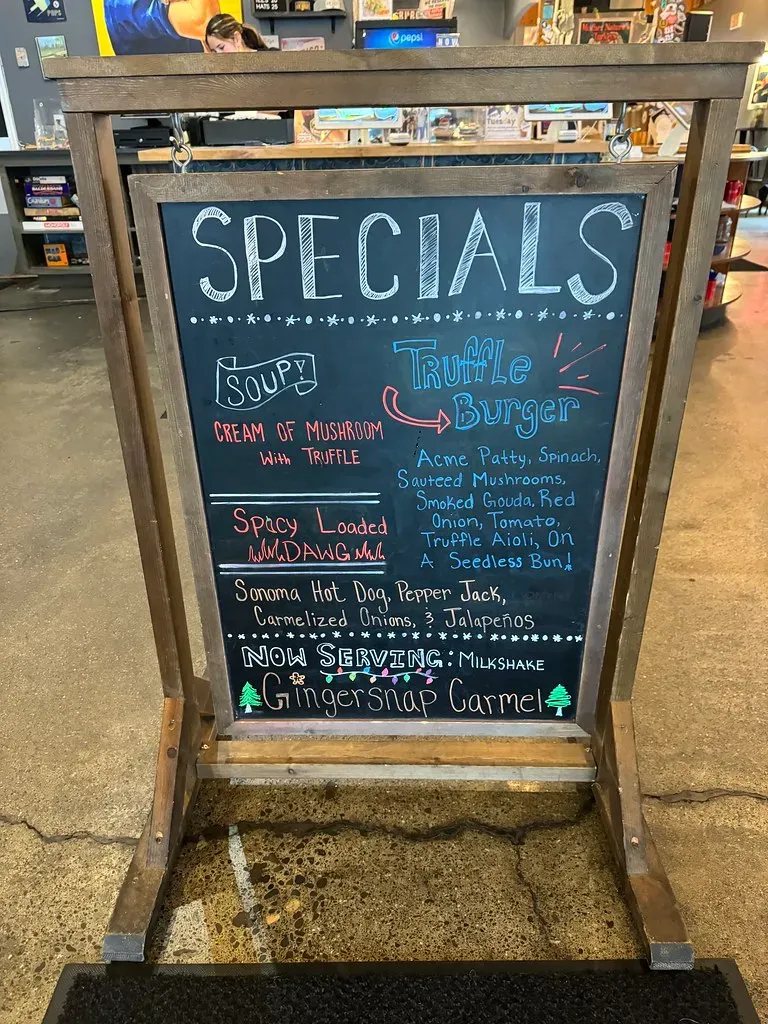 pepsi
SPECIALS
SOUP!
CREAM OF MUSHROOM
With TRUFFLE
Spicy Loaded
DAWG
Truffle
Burger
Acme Patty, Spinach,
Sauteed Mushrooms,
Smoked Gouda, Red
Onion, Tomato,
Truffle Aioli, On
A Seedless Bun!
Sonoma Hot Dog, Pepper Jack,
Carmelized Onions, & Jalapeños
NOW SERVING: MILKSHAKE
Gingersnap Carmel